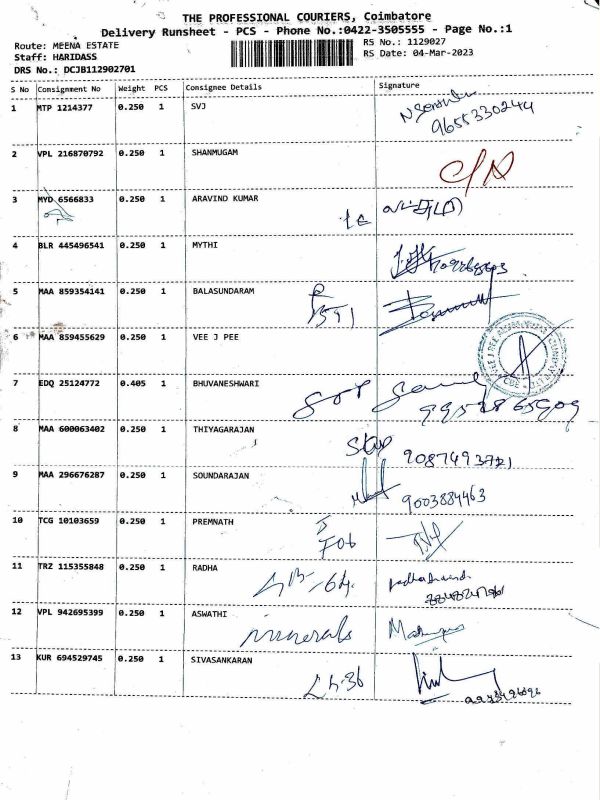 THE PROFESSIONAL COURIERS, Coimbatore
Delivery Runsheet - PCS - Phone No.:0422-3505555 - Page No.:1
Route: MEENA ESTATE
RS No.: 1129027
Staff: HARIDASS
RS Date: 04-Mar-2023
DRS No.: DCJB112902701
S No Consignment No Weight PCS Consignee Details Signature
1 MTP 1214377 0.250 1 SVJ
9655330244
2 VPL 216870792 0.250 1 SHANMUGAM
3 MYD 6566833 0.250 1 ARAVIND KUMAR
4 BLR 445496541 0.250 1 MYTHI
5 MAA 859354141 0.250 1 BALASUNDARAM
6 MAA 859455629 0.250 1 VEE J PEE
7 EDQ 25124772 0.405 1 BHUVANESHWARI
8 MAA 600063402 0.250 1 THIYAGARAJAN
9087493721
9 MAA 296676287 0.250 1 SOUNDARAJAN
9003884463
10 TCG 10103659 0.250 1 PREMNATH
F06
11 TRZ 115355848 0.250 1 RADHA
12 VPL 942695399 0.250 1 ASWATHI
minerals
13 KUR 694529745 0.250 1 SIVASANKARAN